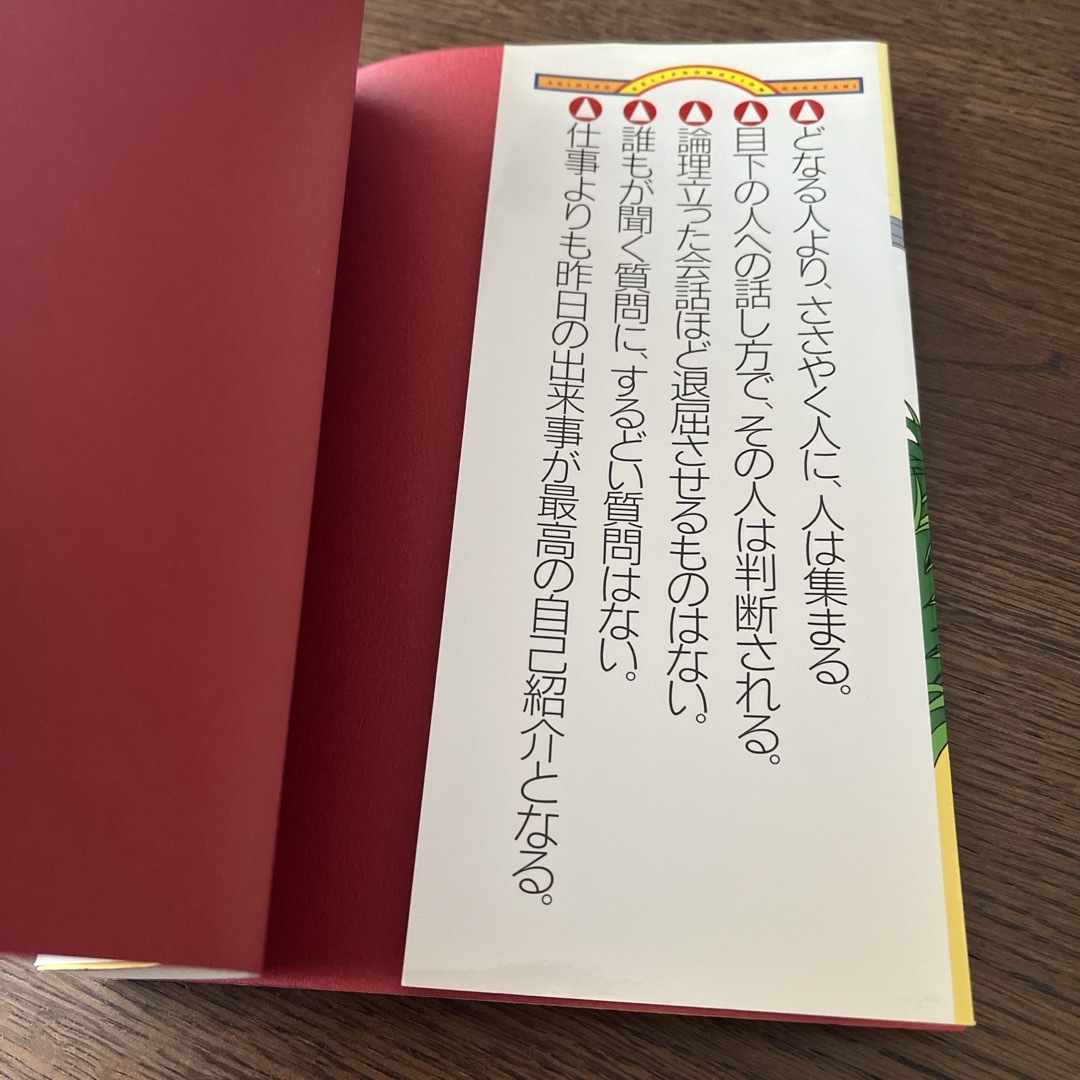 AKIHIRO SELFPROMOTION NAKATANI
どなる人より、ささやく人に、人は集まる。
目下の人への話し方で、その人は判断される。
論理立った会話ほど退屈させるものはない。
誰もが聞く質問に、するどい質問はない。
仕事よりも昨日の出来事が最高の自己紹介となる。